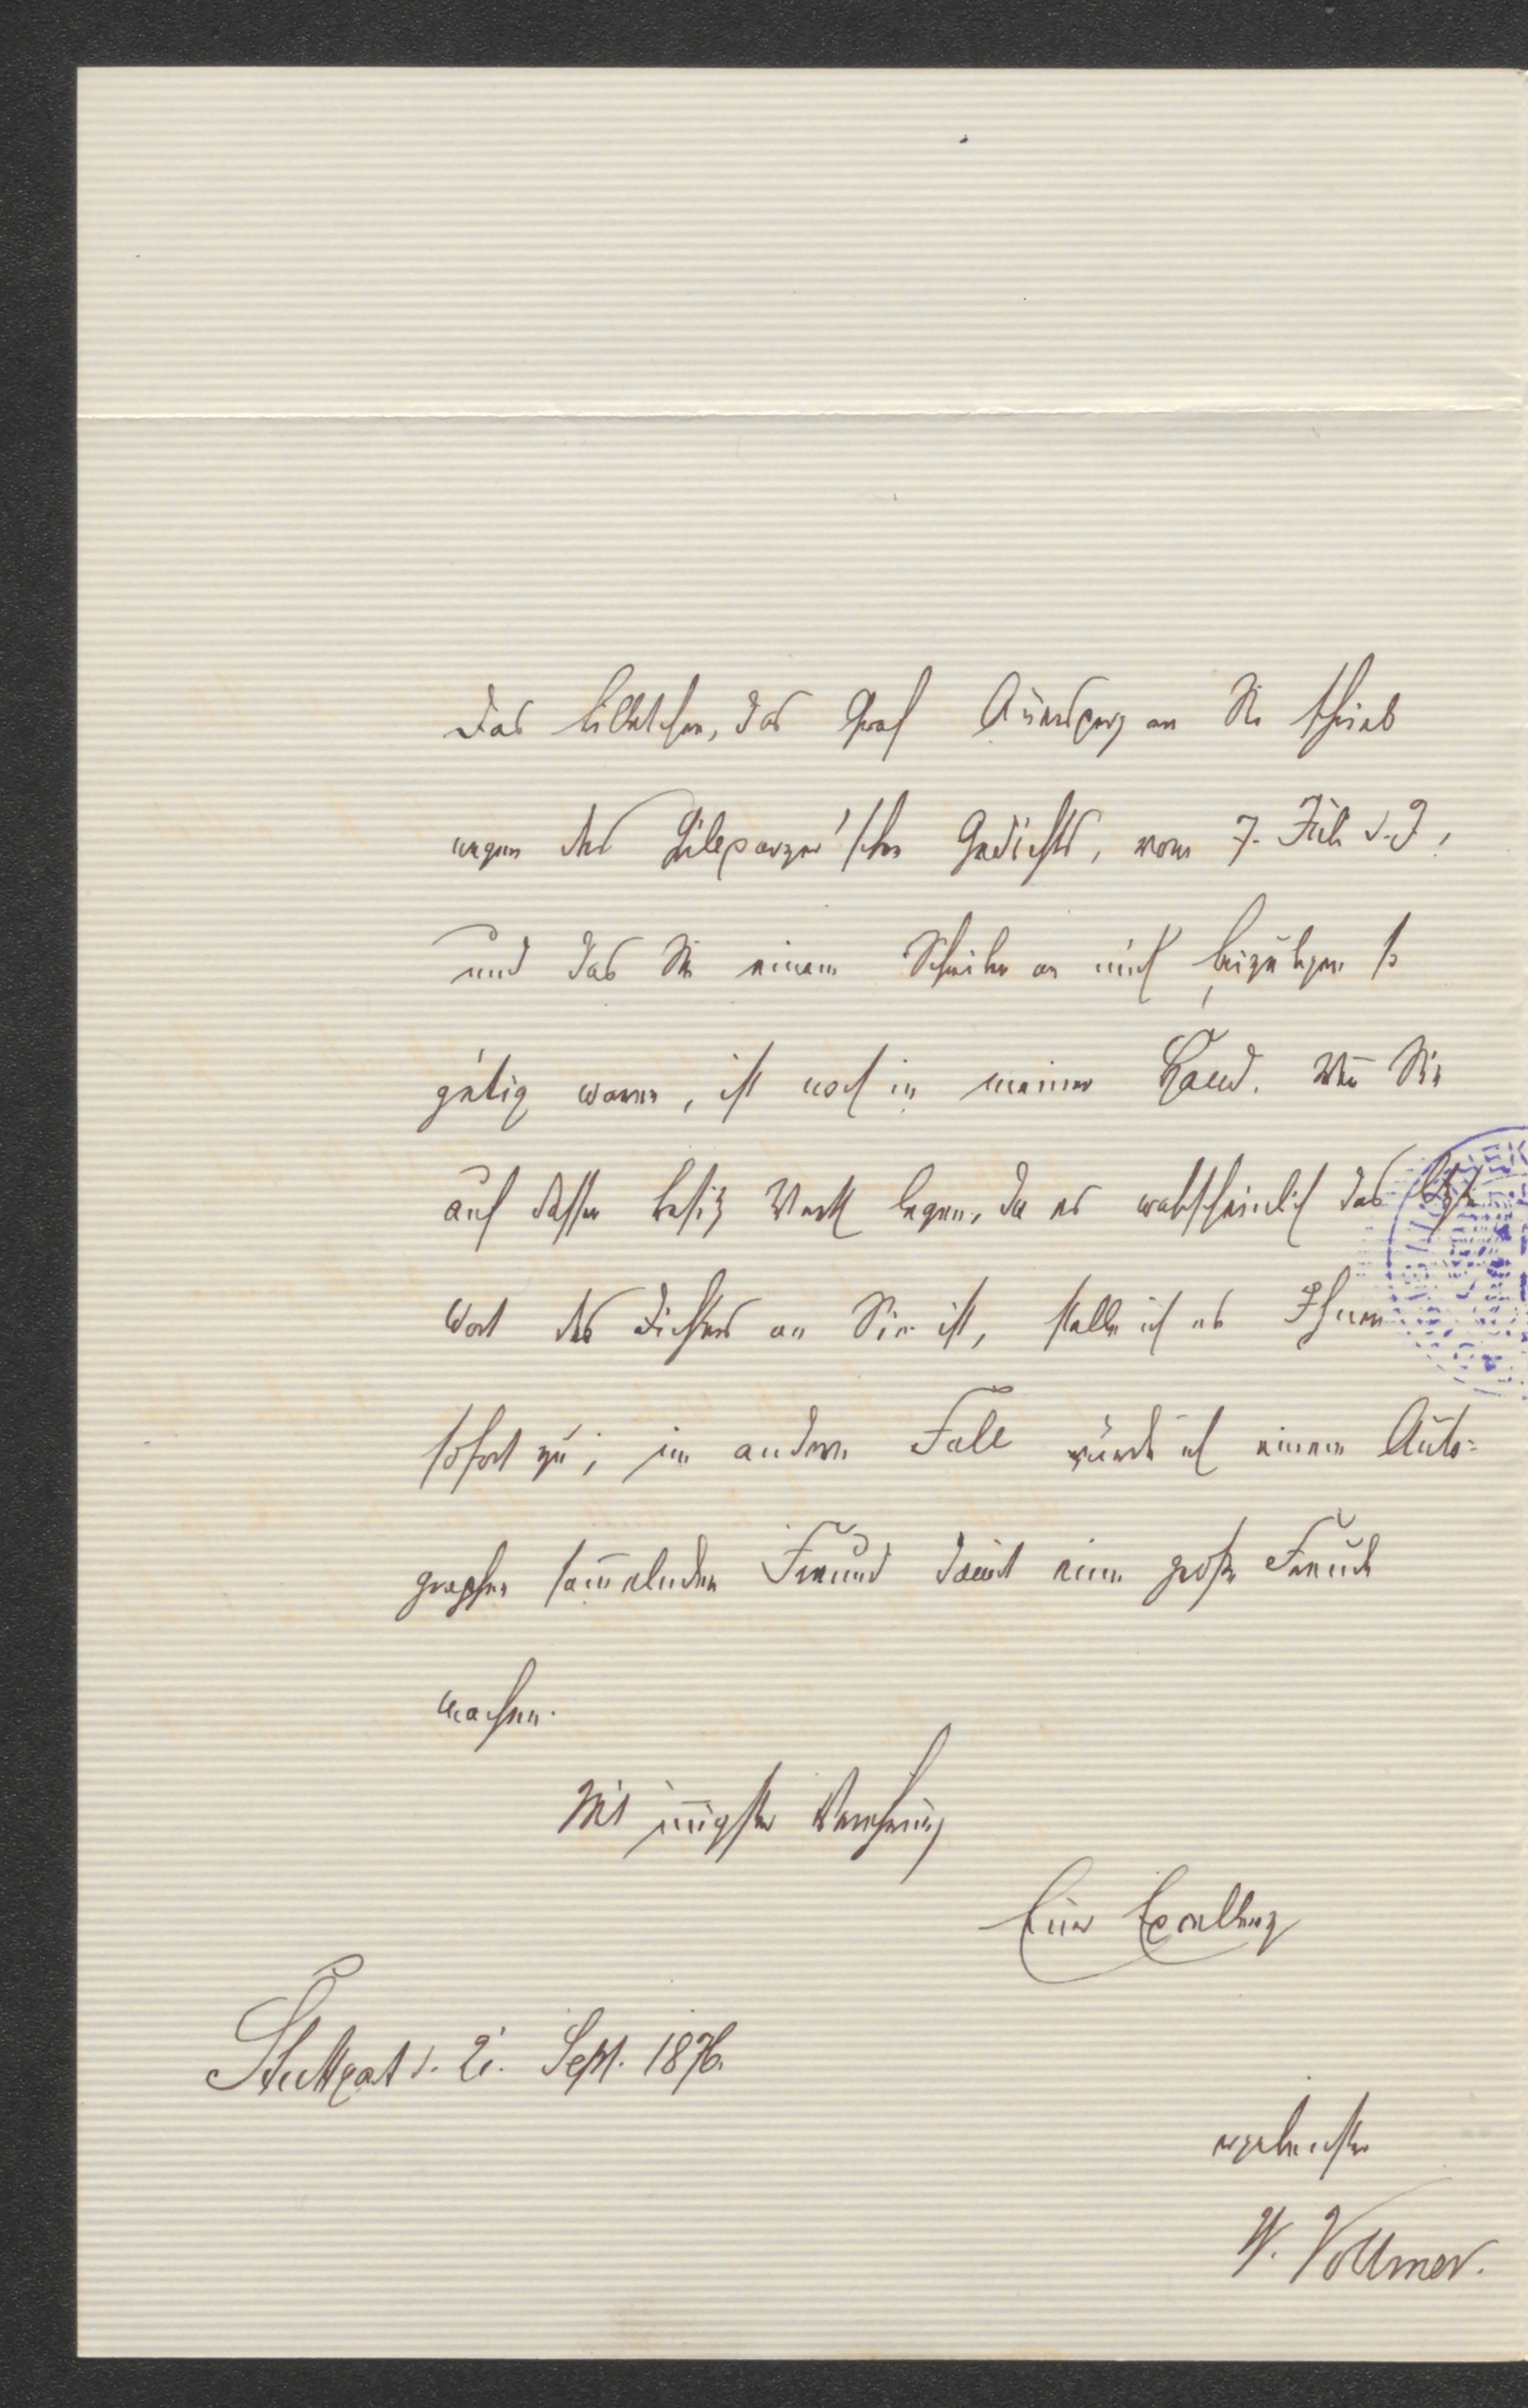 Das Billetchen, das Graf Auersperg an Sie schrieb
wegen des Grillparzer'schen Gedichts, vom 7. Juli d. J.,
und das Sie einem Schreiben an mich beizulegen so
gütig waren, ist noch in meiner Hand. Weñ Sie
auf dessen Besitz Werth legen, da es wahrscheinlich das letzte
Wort des Dichters an Sie ist, stelle ich es Ihnen
sofort zu; im andern Fall würde ich einem Auto-
graphen sam̄elnden Freund damit eine große Freude
machen.
Mit iñigster Verehrung
Euer Excellenz
Stuttgart d. 21. Sept. 1876.
ergebenster
W. Vollmer.